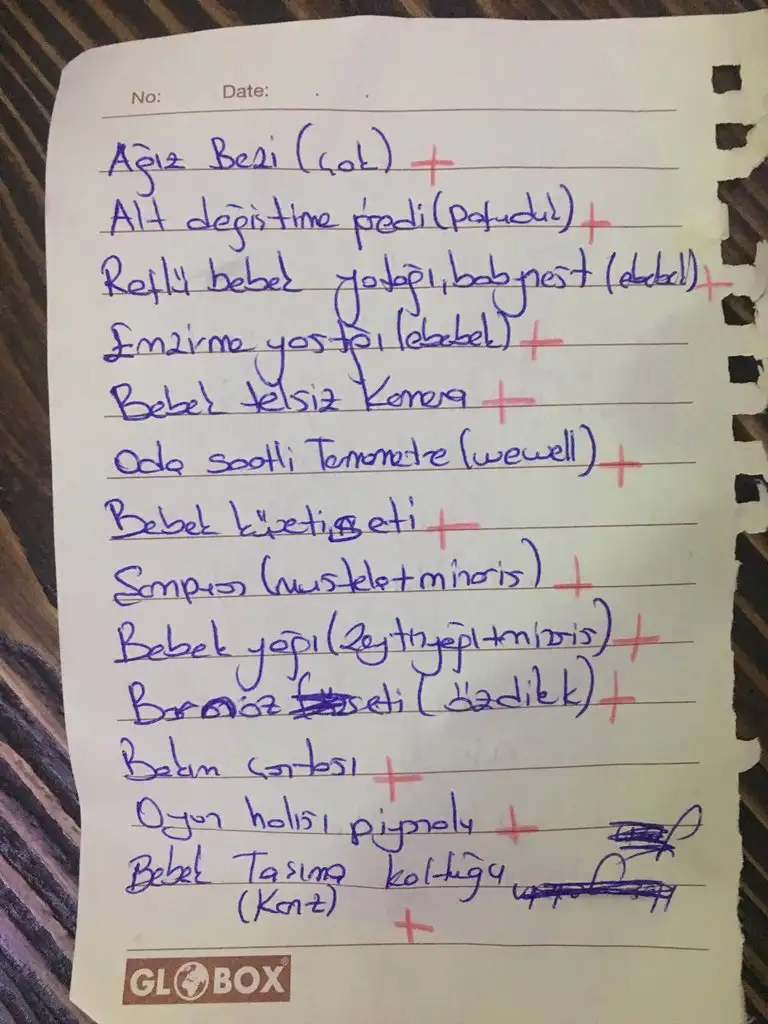 No: Date:
Ağız Bezi (çok) +
Alt değiştime pedi (Pofuduk) +
Reflü bebek yatağı, babynest (ebebek) +
Emzirme yastığı (ebebek) +
Bebek telsiz Kamera +
Oda saatli Termometre (wewell) +
Bebek küveti seti +
Şampuan (mustela + minoris) +
Bebek yağı (Zeytinyağı + minoris) +
Bornoz seti (özdilek) +
Bakım çantası +
Oyun halısı piyanolu +
Bebek Taşıma koltuğu
(Kanz)
+
GLOBOX